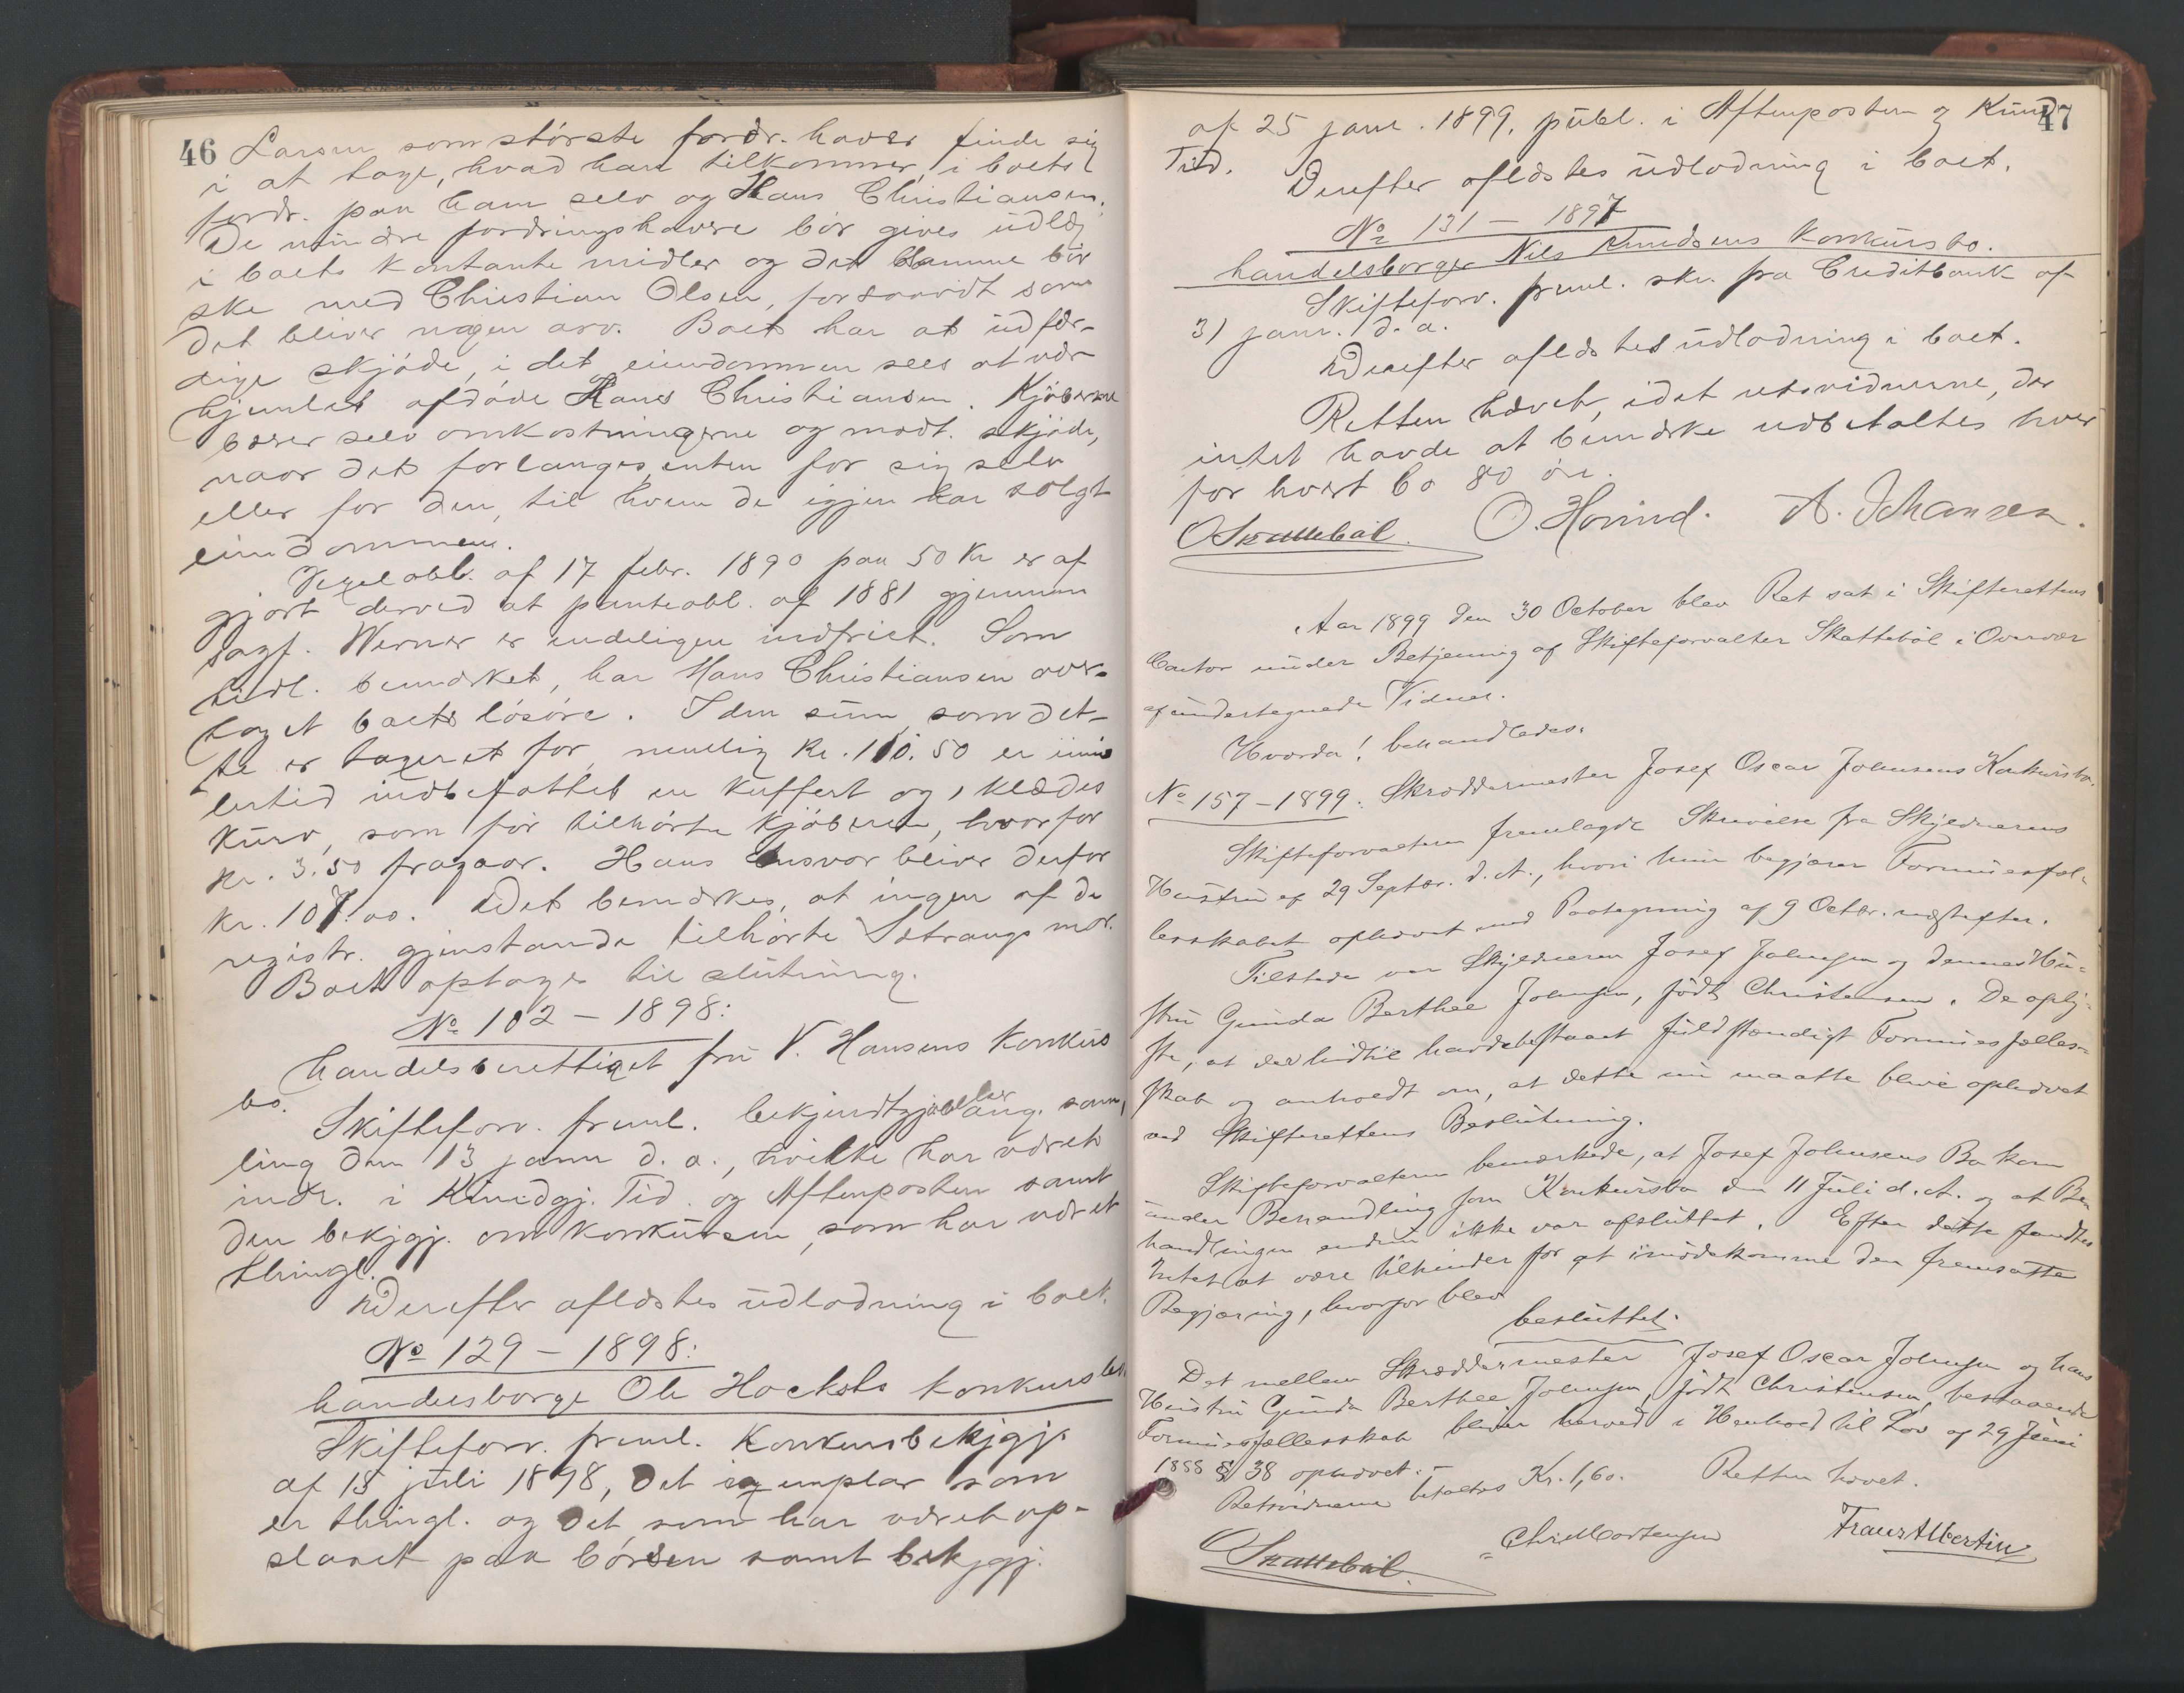 46
Larsen som største fordr.haver finde sig
i at tage, hvad han tilkommer, i boets
fordr. paa ham selv og Hans Christiansen.
De mindre fordringshavere bør gives udlæg
i boets kontante midler og det samme bør
ske med Christian Olsen, forsaavidt som
det bliver nogen arv. Boet har at udfær-
dige skjøde, i det eiendommen sees at være
hjemlet afdøde Hans Christiansen. Kjøberne
bærer selv omkostningerne og modt. skjøde,
naar det forlanges, enten for sig selv
eller for den, til hvem de igjen har solgt
eiendommen.
Vexelobl. af 17 febr. 1890 paa 50 Kr er af
gjort derved at panteobl. af 1881 gjennem
sagf. Werner er endeligen indfriet. Som
tidl. bemærket, har Hans Christiansen over-
taget boets løsøre. I den sum, som det-
te er taxeret for, nemlig kr. 110.50 er imid
lertid indbefattet en kuffert og 1 klædes
kurv, som før tilhørte kjøberen, hvorfor
kr. 3.50 fragaar. Hans ansvar bliver derfor
kr. 107.00. Det bemærkes, at ingen af de
registr. gjenstande tilhørte Sætrangs mor.
Boet optages til slutning.
No 102 – 1898:
handelsberettiget fru V. Hansens konkurs
bo.
Skifteforv. freml. bekjendtgjørelser ang. sam,
ling den 13 janu d. a., hvilke har været
indr. i Kundgj. Tid. og Aftenposten samt
den bekjgj. om konkursen, som har været
thingl.
Derefter aflæstes udlodning i boet.
No 129 – 1898:
handelsborger Ole Hocksts konkursbo
Skifteforv. freml. Konkursbekjgj.
af 15 juli 1898, det exemplar som
er thingl. og det som har været op-
slaaet paa børsen samt bekjgj.
47
af 25 janr. 1899, publ. i Aftenposten og Kund
Tid.
Derefter aflæstes udlodning i boet.
No 131 – 1897
handelsborger Nils Knudsens konkursbo.
Skifteforv. freml. skr. fra Creditbank af
31 janr. d. a.
Derefter aflæstes udlodning i boet.
Retten hævet, idet retsvidnerne, der
intet havde at bemærke udbetaltes hver
for hvert bo 80 øre.
OSkattebøl. O. Hovind. A. Johansen.
Aar 1899 den 30 October blev Ret sat i Skifterettens
Contor under Betjening af Skifteforvalter Skattebøl i Overvær
af undertegnede Vidner.
Hvorda! behandledes:
No 157 – 1899. Skræddermester Josef Oscar Johnsens Konkursbo.
Skifteforvalteren fremlagde Skrivelse fra Skyldnerens
Hustru af 29 Septbr. d. A., hvori hun begjærer Formuesfæl-
lesskabet ophævet med Paategning af 9 Octbr. næstefter.
Tilstede var Skyldneren Josef Johnsen og dennes Hu-
stru Gunda Berthee Johnsen, født Christensen. De oply-
ste, at der hidtil havde bestaaet fuldstændigt Formuesfælles-
skab og anholdt om, at dette nu maatte blive ophævet
ved Skifterettens Beslutning.
Skifteforvalteren bemærkede, at Josef Johnsens Bo kom
under Behandling som Konkursbo den 11 Juli d. A. og at Be
handlingen endnu ikke var afsluttet. Efter dette fandtes
Intet at være til hinder for at imødekomme den fremsatte
Begjæring, hvorfor blev
besluttet:
Det mellem Skræddermester Josef Oscar Johnsen og hans
Hustru Gunda Berthee Johnsen, født Christensen, bestaaende
Formuesfællesskab bliver herved i Henhold til Lov af 29 Juni
1888 § 38 ophævet. –
Retsvidnerne betaltes Kr. 1,60. Retten hævet.
OSkattebøl. Chr. Mortensen Franz Albertin